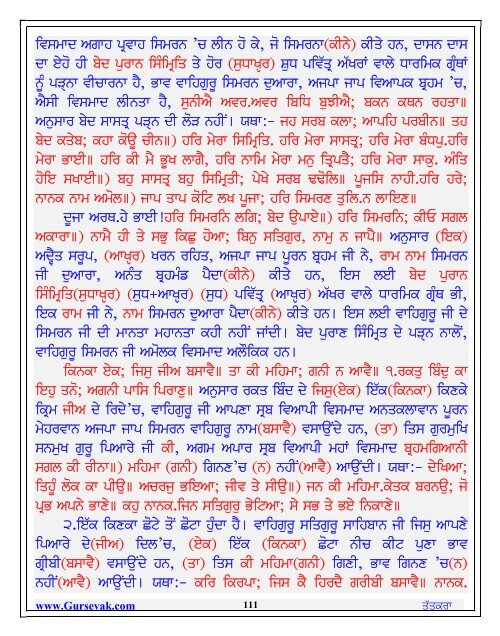 ਵਿਸਮਾਦ ਅਗਾਹ ਪ੍ਰਵਾਹ ਸਿਮਰਨ 'ਚ ਲੀਨ ਹੋ ਕੇ, ਜੋ ਸਿਮਰਨਾ(ਕੀਨੇ) ਕੀਤੇ ਹਨ, ਦਾਸਨ ਦਾਸ
ਦਾ ਏਹੋ ਹੀ ਬੇਦ ਪੁਰਾਨ ਸਿੰਮ੍ਰਿਤਿ ਤੇ ਹੋਰ (ਸੁਧਾਖ੍ਯਰ) ਸ਼ੁਧ ਪਵਿੱਤ੍ਰ ਅੱਖਰਾਂ ਵਾਲੇ ਧਾਰਮਿਕ ਗ੍ਰੰਥਾਂ
ਨੂੰ ਪੜਨਾ ਵੀਚਾਰਨਾ ਹੈ, ਭਾਵ ਵਾਹਿਗੁਰੂ ਸਿਮਰਨ ਦੁਆਰਾ, ਅਜਪਾ ਜਾਪ ਵਿਆਪਕ ਬ੍ਰਹਮ 'ਚ,
ਐਸੀ ਵਿਸਮਾਦ ਲੀਨਤਾ ਹੈ, ਸੁਨੀਐ ਅਵਰ.ਅਵਰ ਬਿਧਿ ਬੁਝੀਐ; ਬਕਨ ਕਥਨ ਰਹਤਾ॥
ਅਨੁਸਾਰ ਬੇਦ ਸਾਸਤ੍ਰ ਪੜ੍ਹਨ ਦੀ ਲੋੜ ਨਹੀਂ। ਯਥਾ:- ਜਹ ਸਰਬ ਕਲਾ; ਆਪਹਿ ਪਰਬੀਨ॥ ਤਹ
ਬੇਦ ਕਤੇਬ; ਕਹਾ ਕੋਊ ਚੀਨ॥) ਹਰਿ ਮੇਰਾ ਸਿਮ੍ਰਿਤਿ. ਹਰਿ ਮੇਰਾ ਸਾਸਤ੍ਰ; ਹਰਿ ਮੇਰਾ ਬੰਧਪੁ.ਹਰਿ
ਮੇਰਾ ਭਾਈ॥ ਹਰਿ ਕੀ ਮੈ ਭੂਖ ਲਾਗੈ, ਹਰਿ ਨਾਮਿ ਮੇਰਾ ਮਨੁ ਤ੍ਰਿਪਤੈ; ਹਰਿ ਮੇਰਾ ਸਾਕੁ. ਅੰਤਿ
ਹੋਇ ਸਖਾਈ॥) ਬਹੁ ਸਾਸਤ੍ਰ ਬਹੁ ਸਿਮ੍ਰਿਤੀ; ਪੇਖੇ ਸਰਬ ਢਢੋਲਿ॥ ਪੂਜਸਿ ਨਾਹੀ.ਹਰਿ ਹਰੇ;
ਨਾਨਕ ਨਾਮ ਅਮੋਲ॥) ਜਾਪ ਤਾਪ ਕੋਟਿ ਲਖ ਪੂਜਾ; ਹਰਿ ਸਿਮਰਣ ਤੁਲਿ.ਨ ਲਾਇਣ॥
ਦੂਜਾ ਅਰਥ.ਹੇ ਭਾਈ!ਹਰਿ ਸਿਮਰਨਿ ਲਗਿ; ਬੇਦ ਉਪਾਏ॥) ਹਰਿ ਸਿਮਰਨਿ; ਕੀਓ ਸਗਲ
ਅਕਾਰਾ॥) ਨਾਮੈ ਹੀ ਤੇ ਸਭੁ ਕਿਛੁ ਹੋਆ; ਬਿਨੁ ਸਤਿਗੁਰ, ਨਾਮੁ ਨ ਜਾਪੈ॥ ਅਨੁਸਾਰ (ਇਕ)
ਅਦ੍ਵੈਤ ਸਰੂਪ, (ਆਖ੍ਯਰ) ਖਰਨ ਰਹਿਤ, ਅਜਪਾ ਜਾਪ ਪੂਰਨ ਬ੍ਰਹਮ ਜੀ ਨੇ, ਰਾਮ ਨਾਮ ਸਿਮਰਨ
ਜੀ ਦੁਆਰਾ, ਅਨੰਤ ਬ੍ਰਹਮੰਡ ਪੈਦਾ(ਕੀਨੇ) ਕੀਤੇ ਹਨ, ਇਸ ਲਈ ਬੇਦ ਪੁਰਾਨ
ਸਿੰਮ੍ਰਿਤਿ(ਸੁਧਾਖ੍ਯਰ) (ਸੁਧ+ਆਖ੍ਯਰ) (ਸੁਧ) ਪਵਿੱਤ੍ਰ (ਆਖ੍ਯਰ) ਅੱਖਰ ਵਾਲੇ ਧਾਰਮਿਕ ਗ੍ਰੰਥ ਭੀ,
ਇਕ ਰਾਮ ਜੀ ਨੇ, ਨਾਮ ਸਿਮਰਨ ਦੁਆਰਾ ਪੈਦਾ(ਕੀਨੇ) ਕੀਤੇ ਹਨ। ਇਸ ਲਈ ਵਾਹਿਗੁਰੂ ਜੀ ਦੇ
ਸਿਮਰਨ ਜੀ ਦੀ ਮਾਨਤਾ ਮਹਾਨਤਾ ਕਹੀ ਨਹੀਂ ਜਾਂਦੀ। ਬੇਦ ਪੁਰਾਣ ਸਿੰਮ੍ਰਿਤ ਦੇ ਪੜ੍ਹਨ ਨਾਲੋਂ,
ਵਾਹਿਗੁਰੂ ਸਿਮਰਨ ਜੀ ਅਮੋਲਕ ਵਿਸਮਾਦ ਅਲੌਕਿਕ ਹਨ।
ਕਿਨਕਾ ਏਕ; ਜਿਸੁ ਜੀਅ ਬਸਾਵੈ॥ ਤਾ ਕੀ ਮਹਿਮਾ; ਗਨੀ ਨ ਆਵੈ॥ ੧.ਰਕਤੁ ਬਿੰਦੁ ਕਾ
ਇਹੁ ਤਨੋ; ਅਗਨੀ ਪਾਸਿ ਪਿਰਾਣੁ॥ ਅਨੁਸਾਰ ਰਕਤ ਬਿੰਦ ਦੇ ਜਿਸੁ(ਏਕ) ਇੱਕ(ਕਿਨਕਾ) ਕਿਣਕੇ
ਕ੍ਰਿਮ ਜੀਅ ਦੇ ਰਿਦੇ'ਚ, ਵਾਹਿਗੁਰੂ ਜੀ ਆਪਣਾ ਸ੍ਰਬ ਵਿਆਪੀ ਵਿਸਮਾਦ ਅਨਤਕਲਾਵਾਨ ਪੂਰਨ
ਮੇਹਰਵਾਨ ਅਜਪਾ ਜਾਪ ਸਿਮਰਨ ਵਾਹਿਗੁਰੂ ਨਾਮ(ਬਸਾਵੈ) ਵਸਾਉਂਦੇ ਹਨ, (ਤਾ) ਤਿਸ ਗੁਰਮੁਖਿ
ਸਨਮੁਖ ਗੁਰੂ ਪਿਆਰੇ ਜੀ ਕੀ, ਅਗਮ ਅਪਾਰ ਸ੍ਰਬ ਵਿਆਪੀ ਮਹਾਂ ਵਿਸਮਾਦ ਬ੍ਰਹਮਗਿਆਨੀ
ਸਗਲ ਕੀ ਰੀਨਾ॥) ਮਹਿਮਾ (ਗਨੀ) ਗਿਨਣ'ਚ (ਨ) ਨਹੀਂ(ਆਵੈ) ਆਉਂਦੀ। ਯਥਾ:- ਦੇਖਿਆ;
ਤਿਹੂੰ ਲੋਕ ਕਾ ਪੀਉ॥ ਅਚਰਜੁ ਭਇਆ; ਜੀਵ ਤੇ ਸੀਉ॥) ਜਨ ਕੀ ਮਹਿਮਾ.ਕੇਤਕ ਬਰਨਉ; ਜੋ
ਪ੍ਰਭ ਅਪਨੇ ਭਾਣੇ॥ ਕਹੁ ਨਾਨਕ.ਜਿਨ ਸਤਿਗੁਰੁ ਭੇਟਿਆ; ਸੇ ਸਭ ਤੇ ਭਏ ਨਿਕਾਣੇ॥
੨.ਇੱਕ ਕਿਣਕਾ ਛੋਟੇ ਤੋਂ ਛੋਟਾ ਹੁੰਦਾ ਹੈ। ਵਾਹਿਗੁਰੂ ਸਤਿਗੁਰੂ ਸਾਹਿਬਾਨ ਜੀ ਜਿਸੁ ਆਪਣੇ
ਪਿਆਰੇ ਦੇ(ਜੀਅ) ਦਿਲ'ਚ, (ਏਕ) ਇੱਕ (ਕਿਨਕਾ) ਛੋਟਾ ਨੀਚ ਕੀਟ ਪੁਣਾ ਭਾਵ
ਗ੍ਰੀਬੀ(ਬਸਾਵੈ) ਵਸਾਉਂਦੇ ਹਨ, (ਤਾ) ਤਿਸ ਕੀ ਮਹਿਮਾ(ਗਨੀ) ਗਿਣੀ, ਭਾਵ ਗਿਨਣ 'ਚ(ਨ)
ਨਹੀਂ(ਆਵੈ) ਆਉਂਦੀ। ਯਥਾ:- ਕਰਿ ਕਿਰਪਾ; ਜਿਸ ਕੈ ਹਿਰਦੈ ਗਰੀਬੀ ਬਸਾਵੈ॥ ਨਾਨਕ.
www.Gursevak.com 111 ਤੱਤਕਰਾ